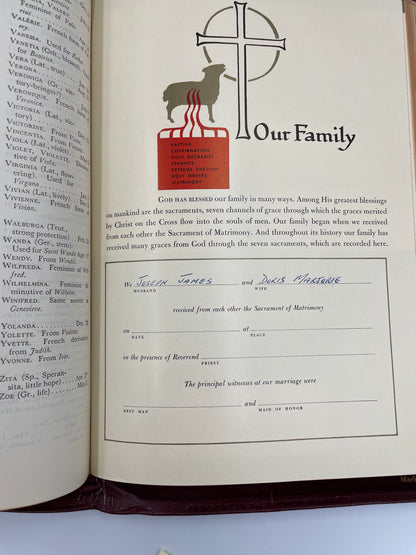 Feminine of Vale-
VALÉRIE. French form
VENETIA (Celt., bless
for Beatrice.
VERA (Lat., true)
VERONA.
VERONIQUE. French
Veronica.
VICTORIA (Lat., vic-
tory)
VICTORINE. From
VINCENTIA
VIOLA (Lat., violet)
VIOLET, VIOLETTE.
tive of Viola.
VIRGINIA (Lat.,
ing). Used for
VIVIAN (Lat., living)
VIVIENNE. French form
Vivian.
WALBURGA (Teut.,
strong protection)
WANDA (Ger., stem)
Used for Saint Wando Apr.
WENDY. From Wendel.
WILFREDA. Feminine of Wil-
fred.
WILHELMINA. Feminine di-
minutive of Wilhelm.
WINIFRED. Same source as
Genevieve.
YOLANDA
YOLETTE. From Violet.
YVETTE. French derivative
from Judith.
YVONNE. From Ivar.
ZITA (Sp., Speran-
sita, little hope) Apr.
ZOE (Gr., life) May
BAPTISM
CONFIRMATION
HOLY EUCHARIST
PENANCE
EXTREME UNCTION
HOLY ORDERS
MATRIMONY
Our Family
GOD HAS BLESSED our family in many ways. Among His greatest blessings
on mankind are the sacraments, seven channels of grace through which the graces merited
by Christ on the Cross flow into the souls of men. Our family began when we received
from each other the Sacrament of Matrimony. And throughout its history our family has
received many graces from God through the seven sacraments, which are recorded here.
We JOSEPH JAMES and DORIS MARJORIE
HUSBAND WIFE
received from each other the Sacrament of Matrimony
on at
DATE PLACE
in the presence of Reverend
PRIEST
The principal witnesses at our marriage were
and
BEST MAN MAID OF HONOR